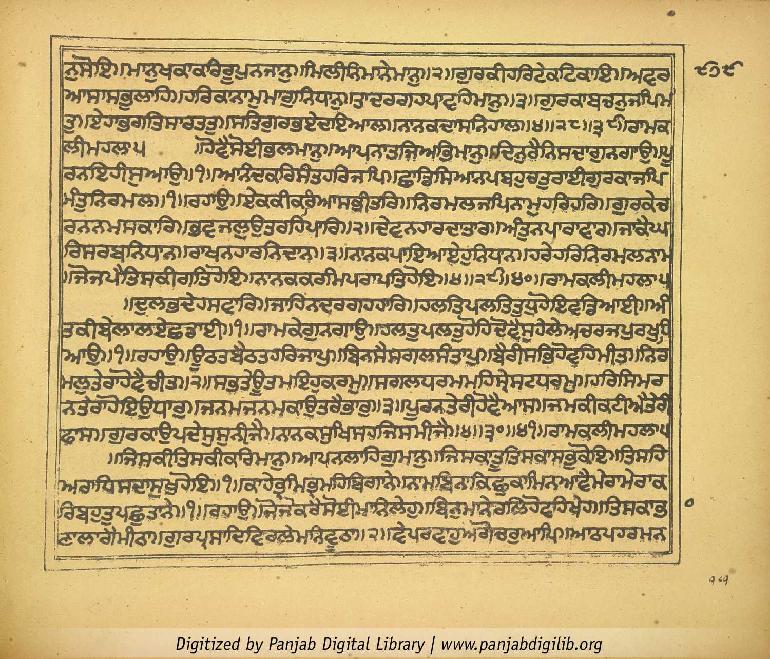 ਨੁਸੋਇ॥ਮਾਨੁਖਕਾਕਰਿਰੂਪੁਨਜਾਨੁ॥ਮਿਲੀਨਿਮਾਨੇਮਾਨੁ॥੨॥ਗੁਰਕੀਹਰਿਟੇਕਟਿਕਾਇ॥ਅਵਰ
ਆਸਾਸਭਲਾਹਿ॥ਹਰਿਕਾਨਾਮੁਮਾਗੁਨਿਧਾਨੁ॥ਤਾਦਰਗਹਪਾਵਹਿਮਾਨੁ॥੩॥ਗੁਰਕਾਬਚਨੁਜਪਿਮੰ
ਤੁ॥ਏਹਾਭਗਤਿਸਾਰਤਤੁ॥ਸਤਿਗੁਰਭਏਦਇਆਲ॥ਨਾਨਕਦਾਸਨਿਹਾਲ॥੪॥੨੮॥੩੯॥ਰਾਮਕ
ਲੀਮਹਲਾ੫ ॥ਹੋਵੈਸੋਈਭਲਮਾਨੁ॥ਆਪਨਾਤਜਿਅਭਿਮਾਨੁ॥ਦਿਨੁਰੈਨਿਸਦਾਗੁਨਗਾਉ॥ਪੂ
ਰਨਏਹੀਸੁਆਉ॥੧॥ਆਨੰਦਕਰਿਸੰਤਹਰਿਜਪਿ॥ਛਾਡਿਸਿਆਨਪਬਹੁਚਤੁਰਾਈਗੁਰਕਾਜਪਿ
ਮੰਤੁਨਿਰਮਲ॥੧॥ਰਹਾਉ॥ਏਕਕੀਕਰਿਆਸਭੀਤਰਿ॥ਨਿਰਮਲਜਪਿਨਾਮੁਹਰਿਹਰਿ॥ਗੁਰਕੇਚ
ਰਨਨਮਸਕਾਰਿ॥ਭਵਜਲੁਉਤਰਹਿਪਾਰਿ॥੨॥ਦੇਵਨਹਾਰਦਾਤਾਰ॥ਅੰਤੁਨਪਾਰਾਵਾਰ॥ਜਾਕੈਘ
ਰਿਸਰਬਨਿਧਾਨ॥ਰਾਖਨਹਾਰਨਿਦਾਨ॥੩॥ਨਾਨਕਪਾਇਆਏਹੁਨਿਧਾਨ॥ਹਰੇਹਰਿਨਿਰਮਲਨਾਮ
॥ਜੋਜਪੈਤਿਸਕੀਗਤਿਹੋਇ॥ਨਾਨਕਕਰਮਿਪਰਾਪਤਿਹੋਇ॥੪॥੨੯॥੪੦॥ਰਾਮਕਲੀਮਹਲਾ੫
॥ਦੁਲਭਦੇਹਸਵਾਰਿ॥ਜਾਹਿਨਦਰਗਹਹਾਰਿ॥ਹਲਤਿਪਲਤਿਤੁਧੁਹੋਇਵਡਿਆਈ॥ਅੰ
ਤਕੀਬੇਲਾਲਏਛਡਾਈ॥੧॥ਰਾਮਕੇਗੁਨਗਾਉ॥ਹਲਤੁਪਲਤੁਹੋਹਿਦੋਵੈਸੁਹੇਲੇਅਚਰਜਪੁਰਖੁਧਿ
ਆਉ॥੧॥ਰਹਾਉ॥ਊਠਤਬੈਠਤਹਰਿਜਾਪੁ॥ਬਿਨਸੈਸਗਲਸੰਤਾਪੁ॥ਬੈਰੀਸਭਿਹੋਵਹਿਮੀਤ॥ਨਿਰ
ਮਲੁਤੇਰਾਹੋਵੈਚੀਤ॥੨॥ਸਭਤੇਊਤਮਇਹੁਕਰਮੁ॥ਸਗਲਧਰਮਮਹਿਸ੍ਰੇਸਟਧਰਮੁ॥ਹਰਿਸਿਮਰ
ਨਿਤੇਰਾਹੋਇਉਧਾਰੁ॥ਜਨਮਜਨਮਕਾਉਤਰੈਭਾਰੁ॥੩॥ਪੂਰਨਤੇਰੀਹੋਵੈਆਸ॥ਜਮਕੀਕਟੀਐਤੇਰੀ
ਫਾਸ॥ਗੁਰਕਾਉਪਦੇਸੁਸੁਨੀਜੈ॥ਨਾਨਕਸੁਖਿਸਹਜਿਸਮੀਜੈ॥੪॥੩੦॥੪੧॥ਰਾਮਕਲੀਮਹਲਾ੫
॥ਜਿਸਕੀਤਿਸਕੀਕਰਿਮਾਨੁ॥ਆਪਨਲਾਹਿਗੁਮਾਨੁ॥ਜਿਸਕਾਤੂਤਿਸਕਾਸਭੁਕੋਇ॥ਤਿਸਹਿ
ਅਰਾਧਿਸਦਾਸੁਖੁਹੋਇ॥੧॥ਕਾਹੇਭ੍ਰਮਿਭ੍ਰਮਹਿਬਿਗਾਨੇ॥ਨਾਮਬਿਨਾਕਿਛੁਕਾਮਿਨਆਵੈਮੇਰਾਮੇਰਾਕ
ਰਿਬਹੁਤੁਪਛੁਤਾਨੇ॥੧॥ਰਹਾਉ॥ਜੋਜੋਕਰੈਸੋਈਮਾਨਿਲੇਹੁ॥ਬਿਨੁਮਾਨੇਰਲਿਹੋਵਹਿਖੇਹ॥ਤਿਸਕਾਭ
ਾਣਾਲਾਗੈਮੀਠਾ॥ਗੁਰਪ੍ਰਸਾਦਿਵਿਰਲੇਮਨਿਵੂਠਾ॥੨॥ਵੇਪਰਵਾਹੁਅਗੋਚਰੁਆਪਿ॥ਆਠਪਹਰਮਨ
੧੬੧
Digitized by Panjab Digital Library | www.panjabdigilib.org